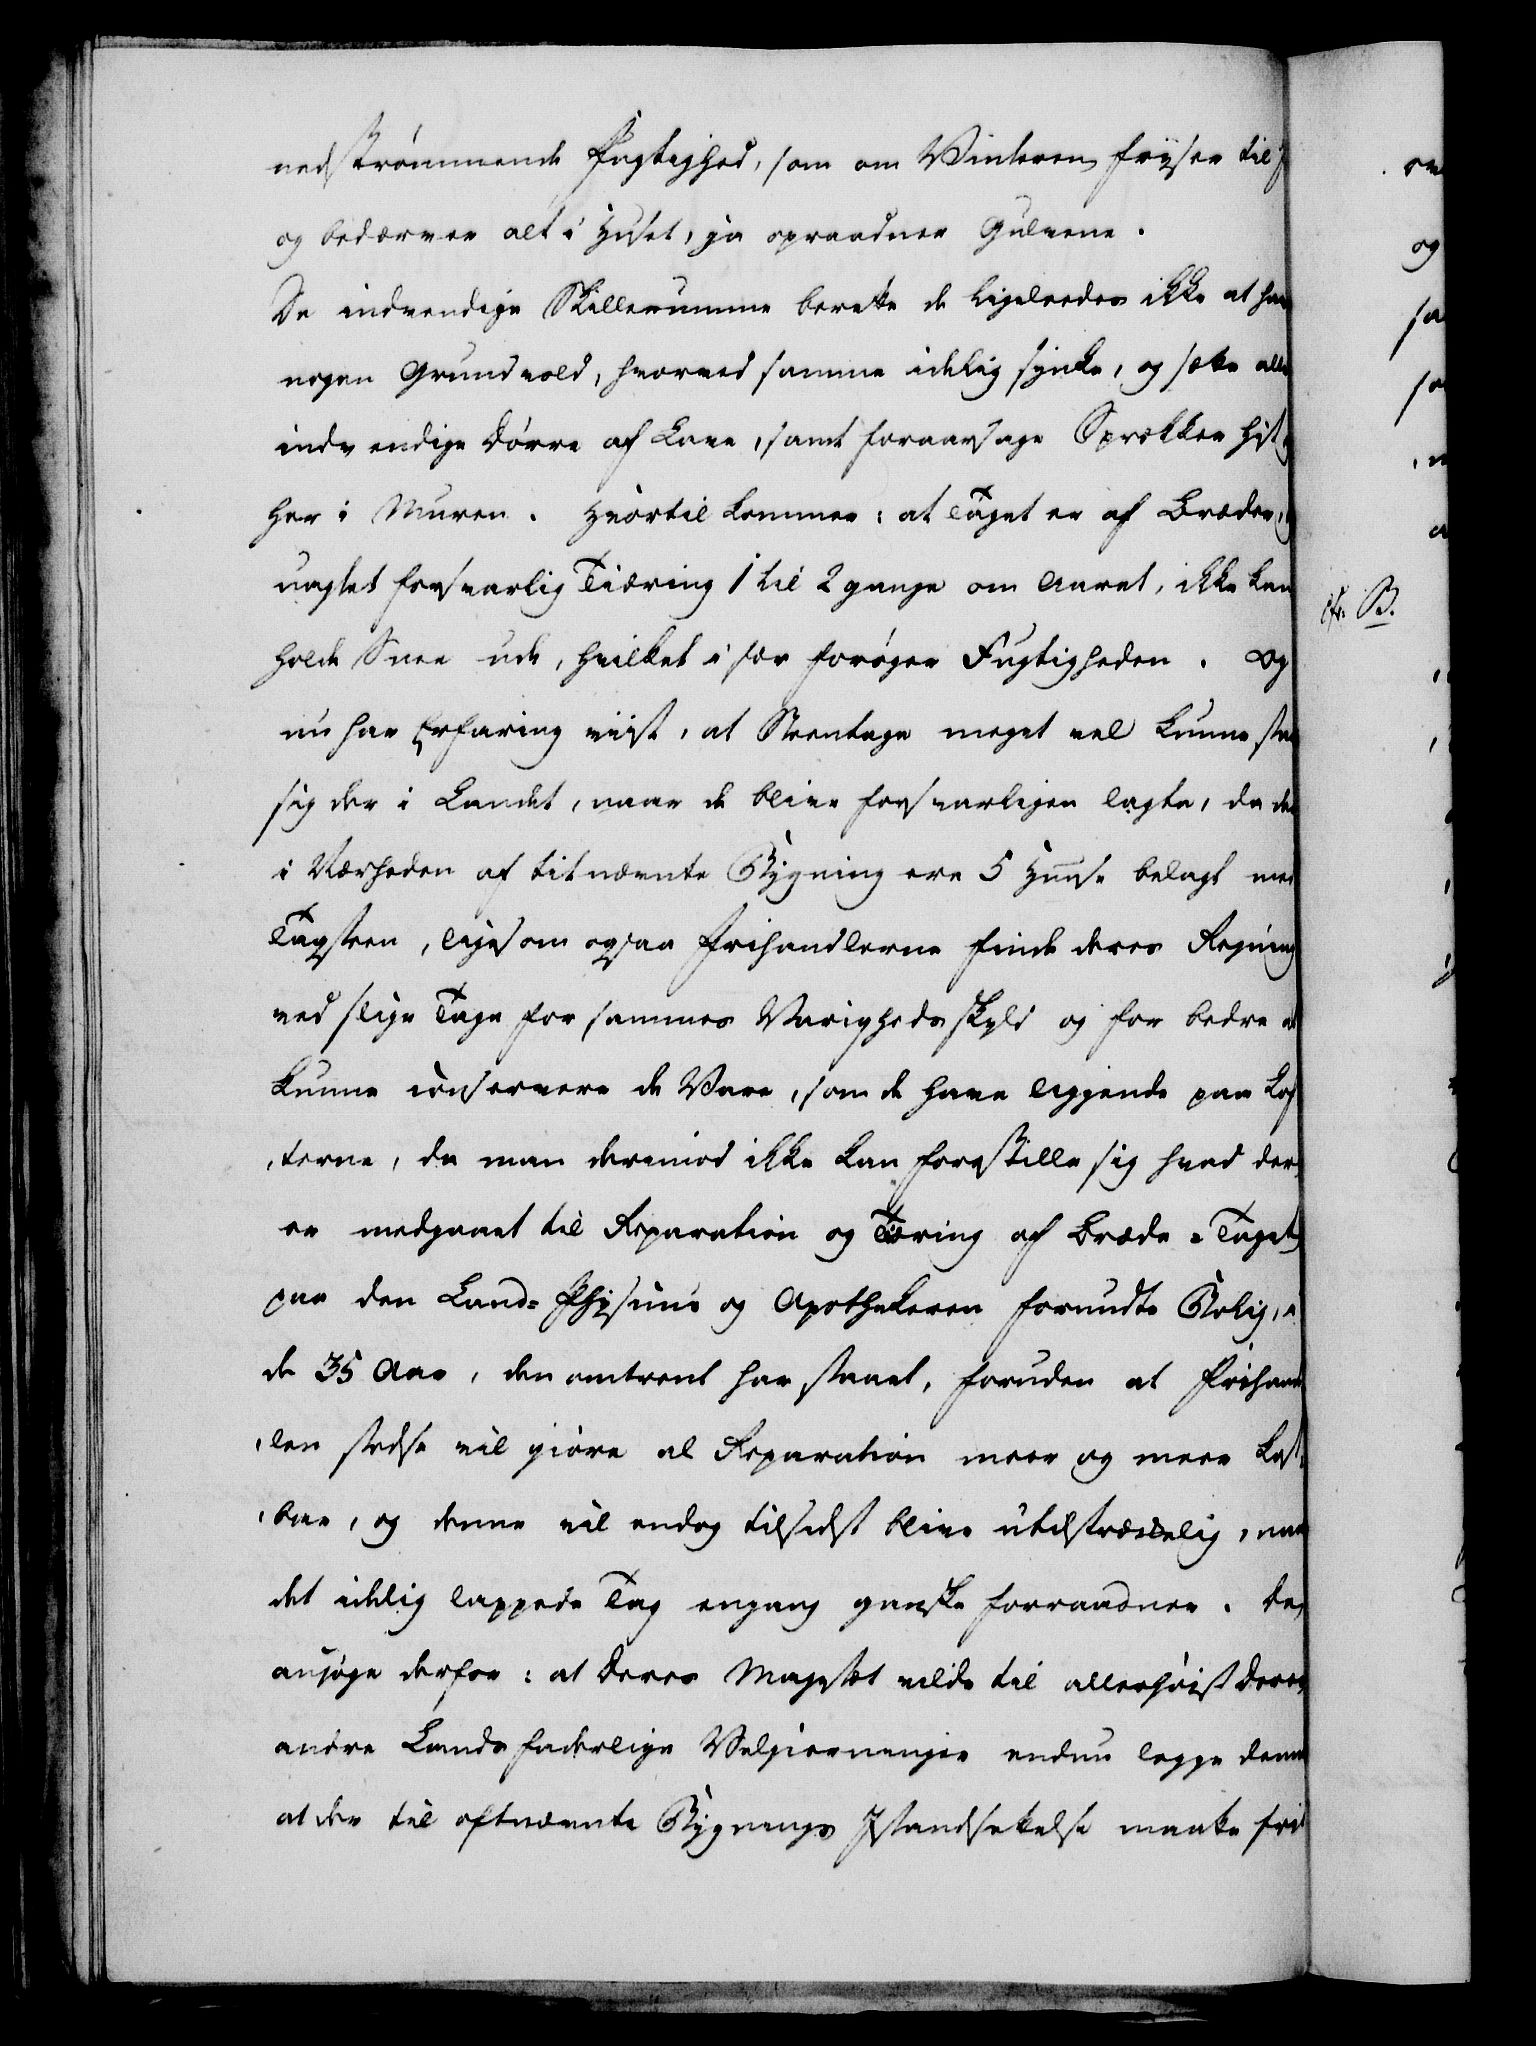 nedstrømmende Fugtighed, som om Vinteren fryser til
og bedærver alt i Huset, ja opraadner Gulvene.
De indvendige Skillerumme berette de ligeledes ikke at ha
nogen Grundvold, hvorved samme idelig synke, og sette alle
indvendige Dørre af Lave, samt foraarsage Sprekker hist
her i Muren. Hvortil kommer: at Taget er af Bræder,
uagtet forsvarlig Tiæring 1 til 2 gange om Aaret, ikke kan
holde Snee ude, hvilket i sær forøger Fugtigheden. Og
nu har Erfaring viist, at Steentage meget vel kunne staa
sig der i Landet, naar de blive forsvarligen lagte, da de
i Nærheden af titnævnte Bygning ere 5 Huuse belagt med
Tagsteen, ligesom ogsaa Frihandlerne finde deres Regning
ved slige Tage for sammes Varigheds skyld og for bedre at
kunne conservere de Vare, som de have liggende paa Lof
terne, da man derimod ikke kan forestille sig hvad der
er medgaaet til Reparation og Tiæring af Bræde-Taget
paa den Land-Physicus og Apothekeren forundte Bolig, i
de 35 Aar, den omtrent har staaet, foruden at Frihand
len stedse vil giøre al Reparation meer og meer kost
bar, og denne vil endog tilsidst blive utilstrækkelig, naar
det idelig lappede Tag engang ganske forraadner. De
ansøge derfor: at Deres Majestet vilde til allerhøist Deres
andre Landsfaderlige Velgierninger endnu legge denne
at der til oftnævnte Bygnings Istandsettelse maatte fri
cfr. B.